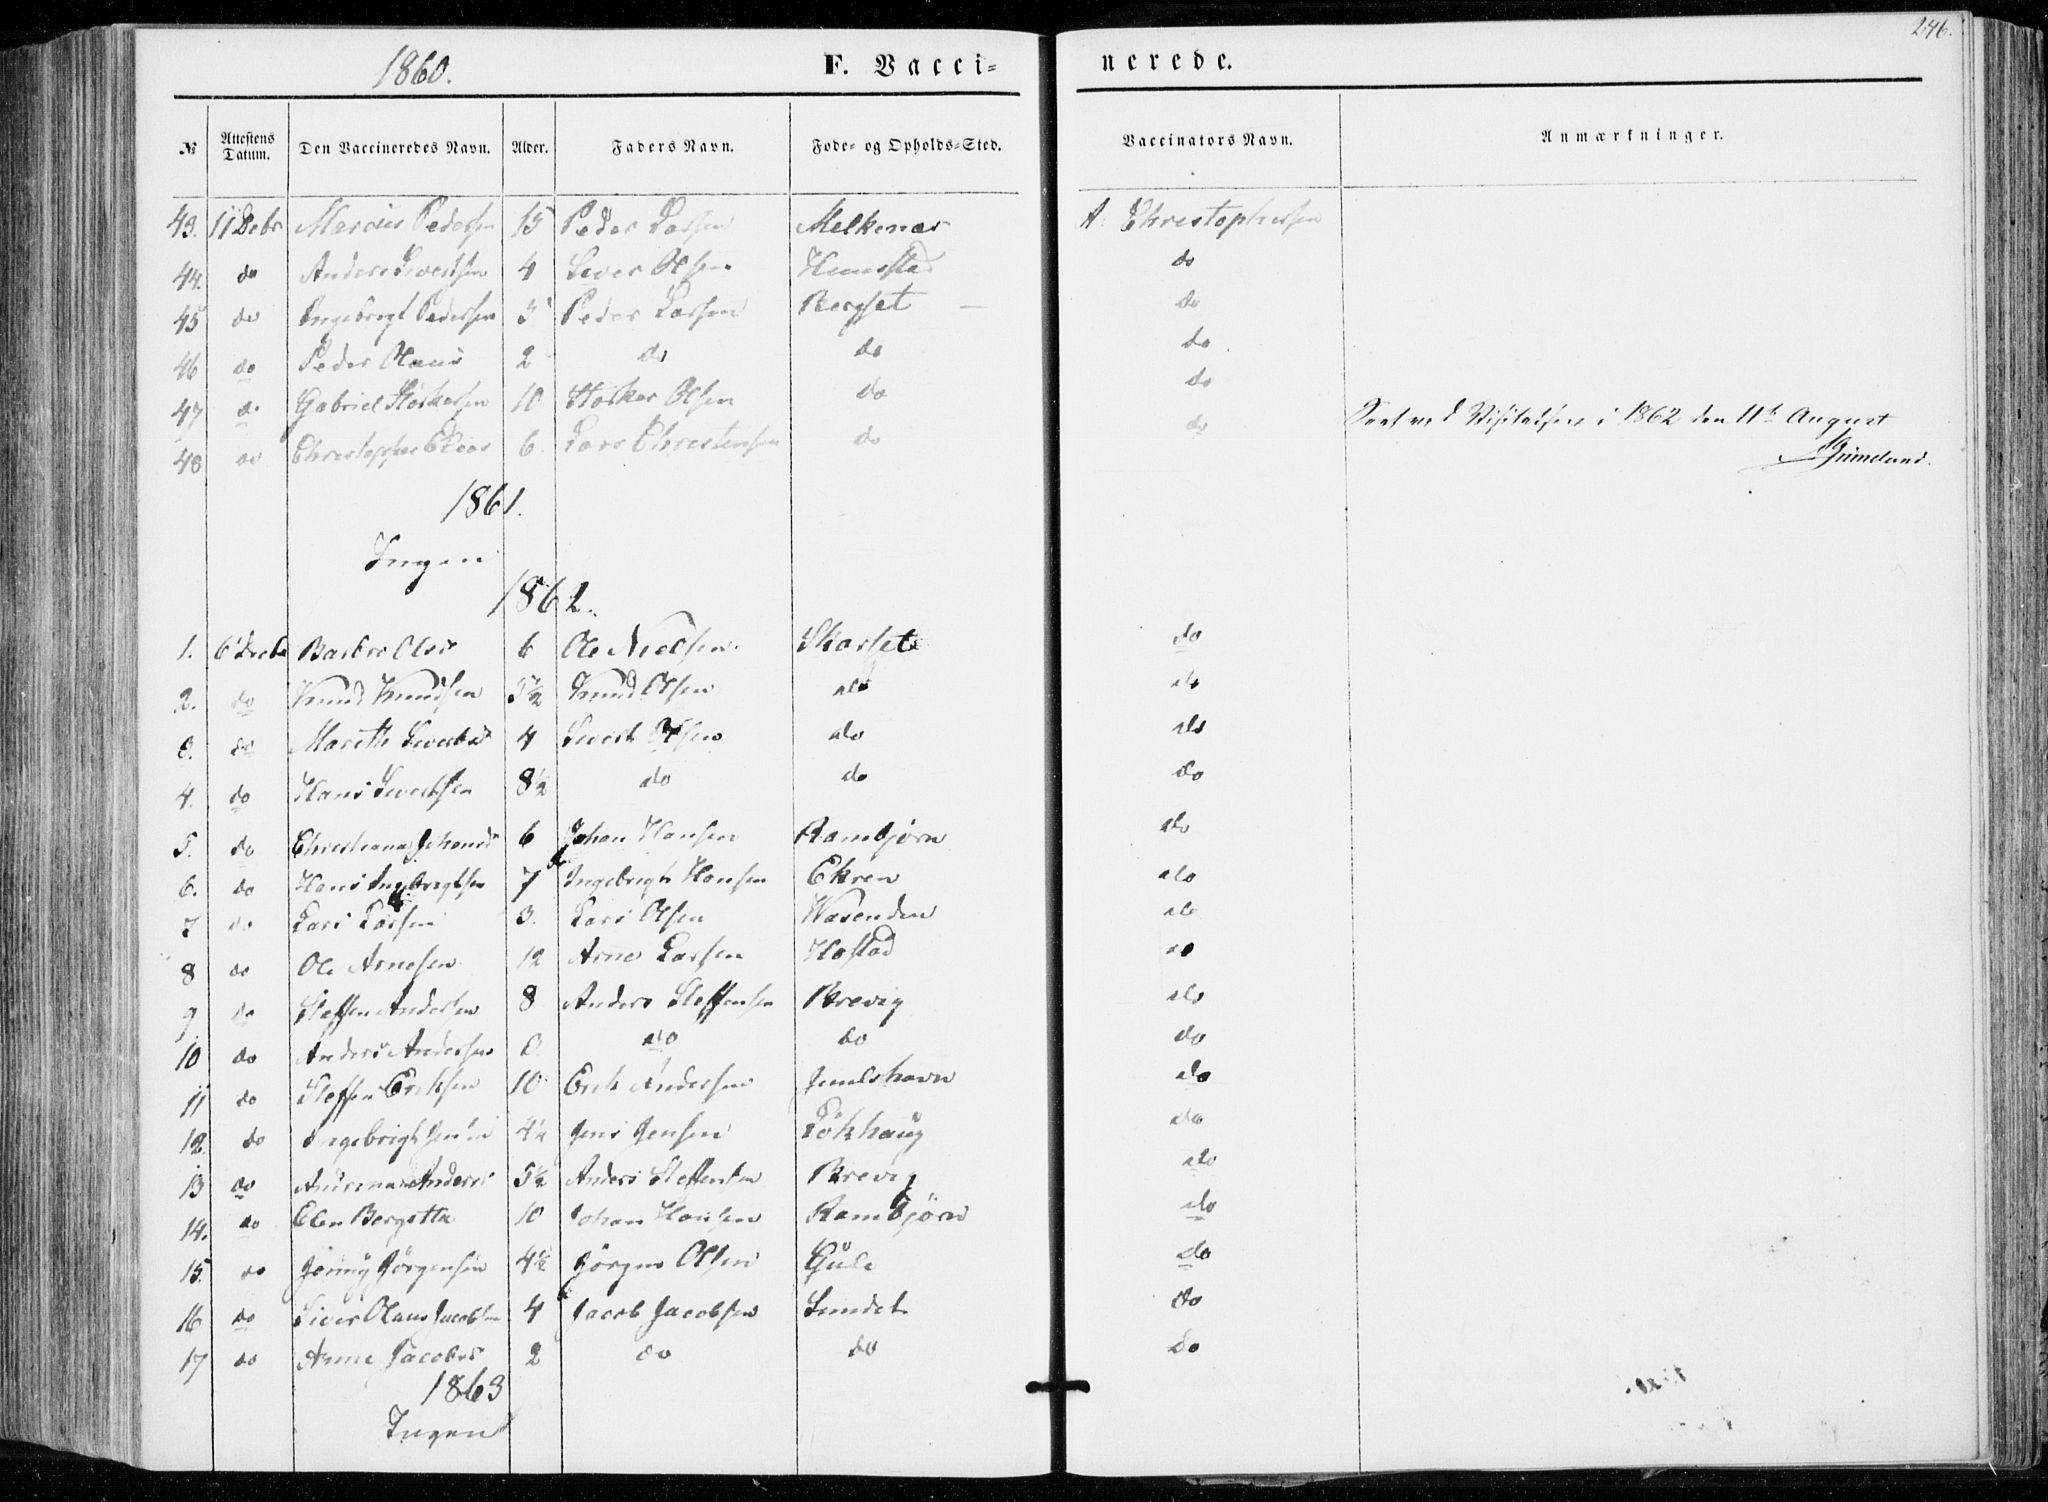 246.
1860.
F. Vacci= nerede.
№ Attestens Datum. Den Vaccineredes Navn. Alder. Faders Navn. Føde= og Opholds=Sted. Vaccinators Navn. Anmærkninger.
43. 11 Debr Marcus Pedersen 15 Peder Larsen Melkenær A. Christophersen
44. do Anders Sivertsen 4 Siver Olsen Hunstad do
45 do Ingebrigt Pedersen 5 Peder Larsen Bergset do
46 do Peder Olaus 2 do do do
47 do Gabriel Størkersen 10 Størker Olsen do do
48 do Christopher Elias 6. Lars Christensen do do Seet ved Visitatsen i 1862 den 11te August
Grimelund.
1861.
Ingen
1862.
1. 6 Decbr Barbro Olsd 6 Ole Nielsen Skarset do
2. do Knud Knudsen 5½ Knud Olsen do do
3. do Marith Sivertsd 4 Sivert Olsen do do
4. do Hans Sivertsen 8½ do do do
5. do Christiana Johansd 6 Johan Hansen Rambjørn do
6. do Hans Ingebrigtsen 7 Ingebrigt Hansen Ekren do
7 do Lars Larsen 3. Lars Olsen Vasenden do
8 do Ole Arnesen 12 Arne Larsen Hostad do
9 do Steffen Andersen 8 Anders Steffensen Brevig do
10 do Anders Andersen do do do
11 do Steffen Eriksen 10 Erik Andersen Juulshavn do
12. do Ingebrigt Jensen 4½ Jens Jensen Løkhaug do
13 do Andersd 5½ Anders Steffensen Brevig do
14. do Elen Bergitta 10 Johan Hansen Rambjørn do
15. do Jørgensen 4½ Jörgen Olsen Gule do
16 do Siver Olaus Jacobsen 4 Jacob Jacobsen Sundet do
17 do Anne Jacobsd 2 do do do
1863
Ingen